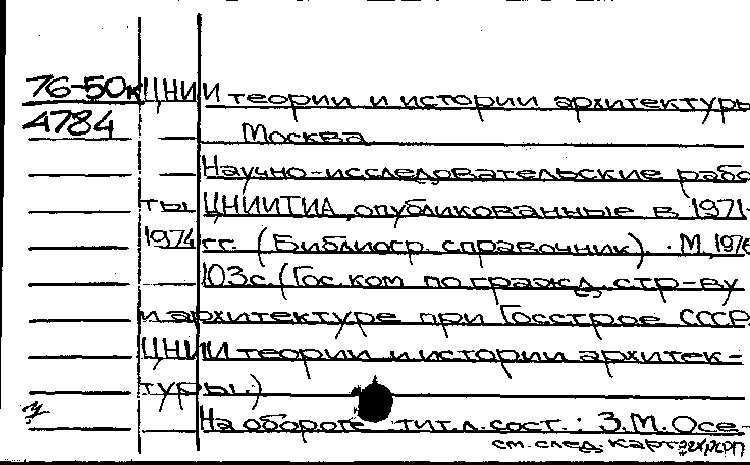 76-50к ЦНИИ теории и истории архитектуры
4784 Москва
Научно-исследовательские рабо
ты ЦНИИТИА, опубликованные в 1971-
1974 гг. (Библиогр. справочник). М, 1976
103с. (Гос. ком по гражд. стр-ву
и архитектуре при Госстрое СССР.
ЦНИИ теории и истории архитек-
туры.)
На обороте тит.л. сост.: З.М. Осе-
см. след.